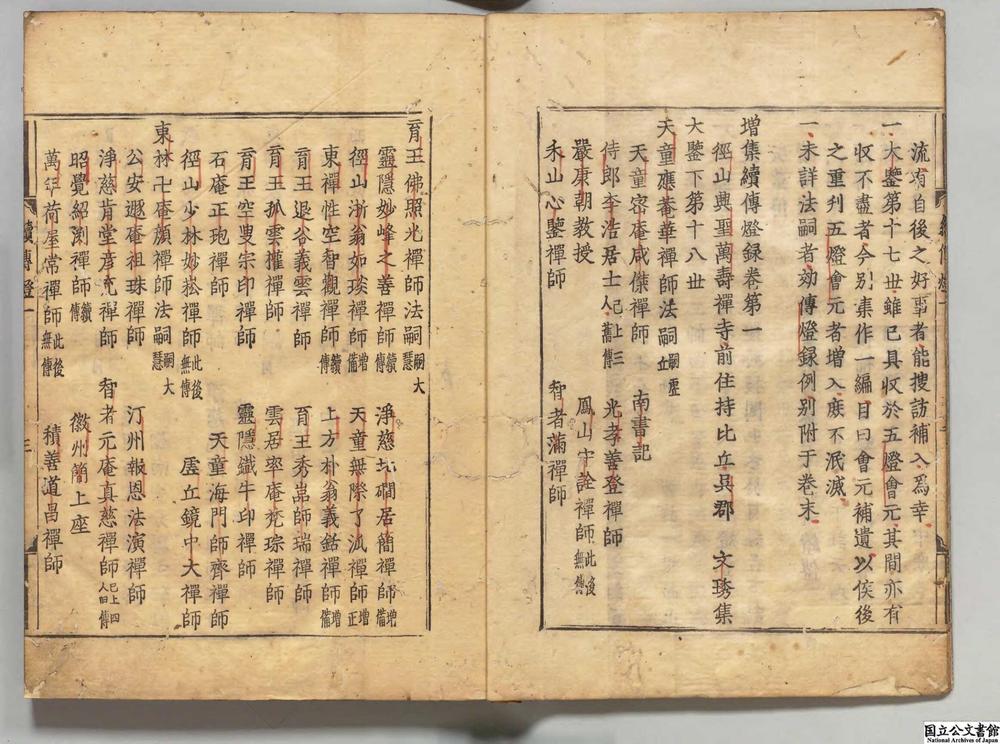 流有自後之好事者能搜訪補入爲幸
一大鑒第十七世雖已具收於五燈會元其間亦有
收不盡者今別集作一編目曰會元補遺以俟後
之重刋五燈會元者増入庶不泯滅
一未詳法嗣者効傳燈録例別附于巻末
増集續傳燈録巻第一
徑山興聖萬壽禪寺前住持比丘吳郡 文琇集
大鑒下第十八世
天童應菴華禪師法嗣嗣虎丘
天童密庵咸傑禪師 南書記
侍郎李浩居士已上三人舊傳 光孝善登禪師
嚴康朝教授 鳳山守詮禪師此後無傳
禾山心鑒禪師 智者滿禪師
育王佛照光禪師法嗣嗣大慧
靈隱妙峰之善禪師續傳 淨慈北磵居簡禪師増備
徑山浙翁如琰禪師増備 天童無際了派禪師増正
東禪性空智觀禪師續傳 上方朴翁義銛禪師増備
育王退谷義雲禪師 育王秀嵓師瑞禪師
育王孤雲權禪師 雲居率庵梵琮禪師
育王空叟宗印禪師 靈隱鐵牛印禪師
石庵正玸禪師 天童海門師齊禪師
徑山少林妙崧禪師此後無傳 虎丘鏡中大禪師
東林卍庵顔禪師法嗣嗣大慧
公安遯庵祖珠禪師 汀州報恩法演禪師
淨慈肯堂彦充禪師 智者元庵真慈禪師已上四人旧傳
昭覺紹淵禪師續傳 徽州簡上座
萬年荷屋常禪師此後無傳 積善道昌禪師
續傳燈一
国立公文書館
National Archives of Japan